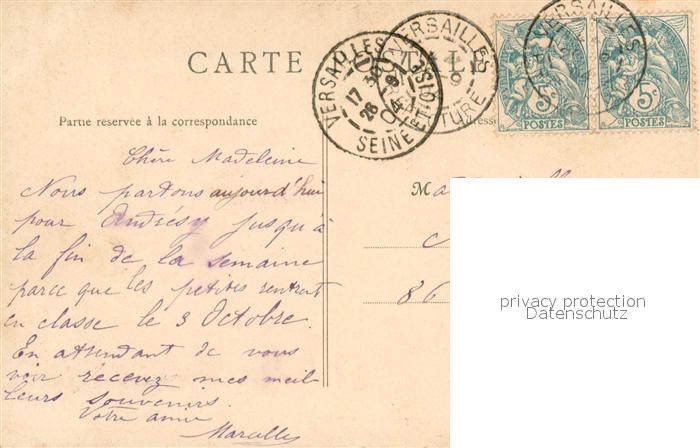 CARTE POSTALE
VERSAILLES
17 30
28 -9
04
SEINE ET OISE
VERSAILLES
VERSAILLES
5c
POSTES
5c
POSTES
Partie reservée à la correspondance
Adresse
Chère Madeleine
Nous partons aujourd'hui
pour Andrésy jusqu'à
la fin de la semaine
parce que les petites rentrent
en classe le 3 Octobre.
En attendant de vous
voir recevez mes meil
leurs souvenirs.
Votre amie
Marcelle
M
86
privacy protection
Datenschutz